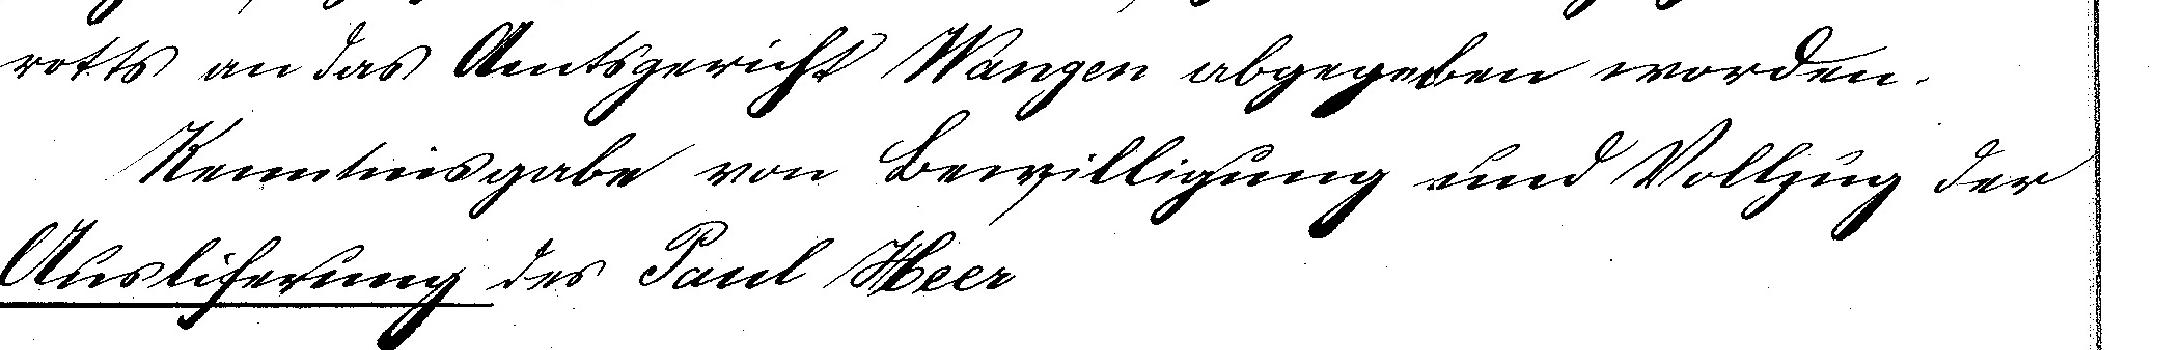 rotts an das Amtsgericht Wangen abgegeben worden.
Kenntnisgabe von Bewilligung und Vollzug der
Ausliferung des Paul Heer